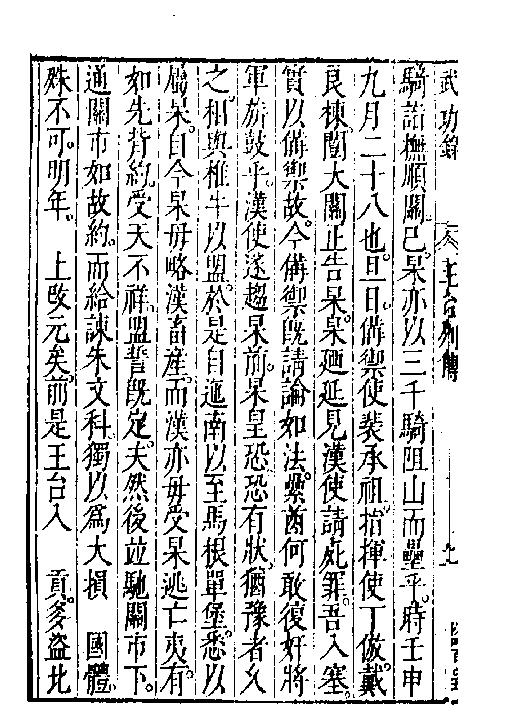 武功錄 王台列傳
騎詣撫順關已杲亦以三千騎阻山而壘平時壬申
九月二十八也旦日備禦使裴承祖指揮使丁倣戴
良棟闓大關正告杲杲廼延見漢使請死罪吾入塞
質以備禦故今備禦既請論如法纍酋何敢復奸將
軍旂鼓乎漢使遂趨杲前杲皇恐恐有狀猶豫者久
之相與椎牛以盟於是自迤南以至馬根單堡悉以
屬杲自今杲毋略漢畜產而漢亦毋受杲逃亡夷有
如先背約受天不祥盟誓既定夫然後並馳關市下
通關市如故約而給諫朱文科獨以為大損 國體
殊不可明年 上改元矣前是王台入 貢爹盜北